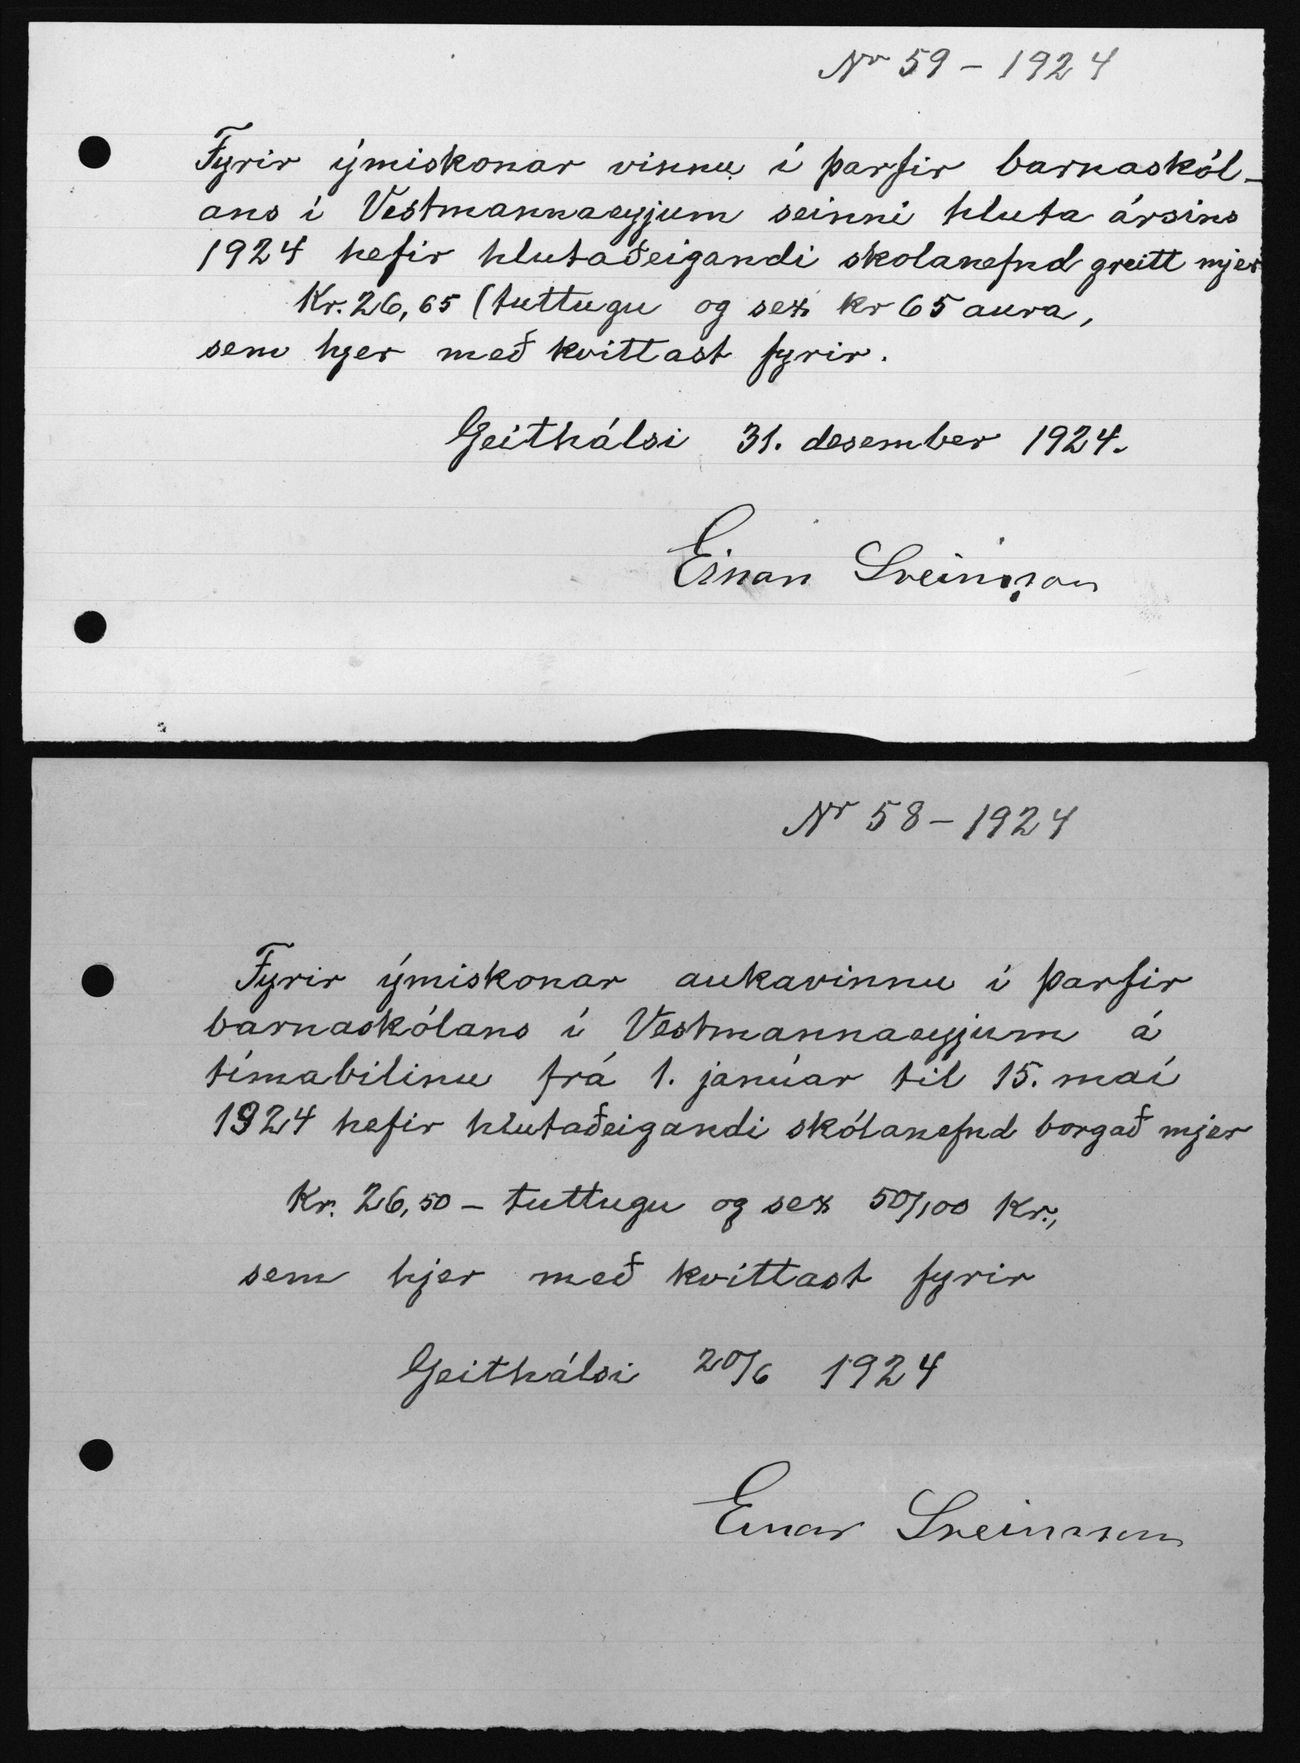 Nr 59 - 1924
Fyrir ýmiskonar vinnu í þarfir barnaskól-
ans í Vestmannaeyjum seinni hluta ársins
1924 hefir hlutaðeigandi skolanefnd greitt mjer
Kr. 26,65 (tuttugu og sex kr 65 aura,
sem hjer með kvittast fyrir.
Geithálsi 31. desember 1924.
Einar Sveinsson
Nr 58 - 1924
Fyrir ýmiskonar aukavinnu í þarfir
barnaskólans í Vestmannaeyjum á
tímabilinu frá 1. janúar til 15. maí
1924 hefir hlutaðeigandi skólanefnd borgað mjer
Kr. 26,50 - tuttugu og sex 50/100 Kr.,
sem hjer með kvittast fyrir
Geithálsi 20/6 1924
Einar Sveinsson